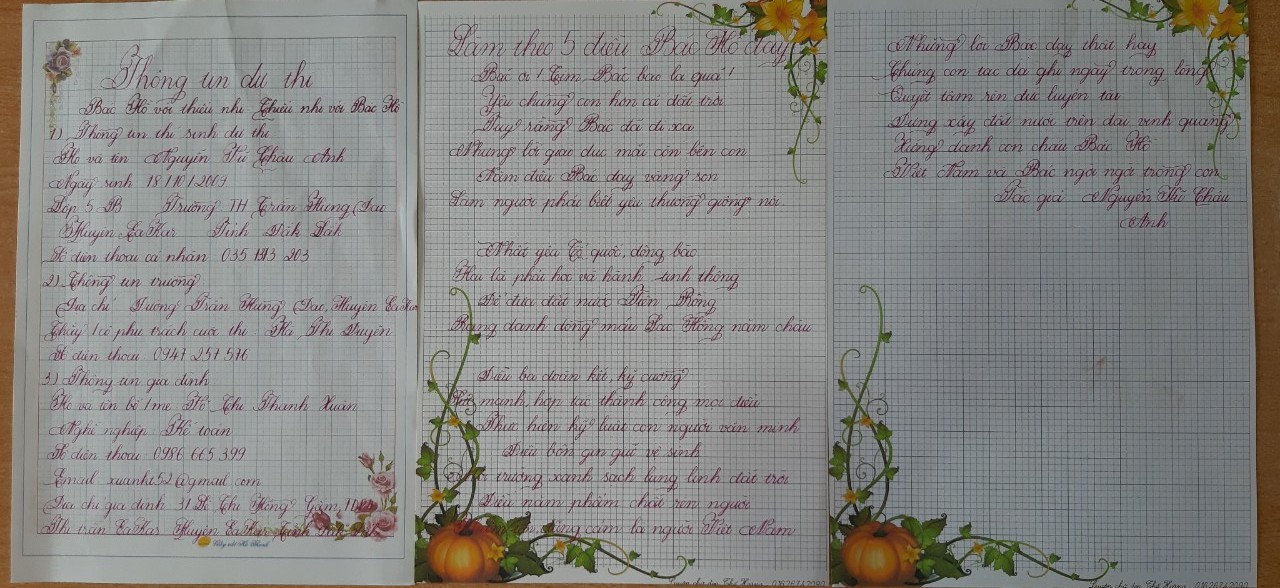 Thông tin dự thi
Bác Hồ với thiếu nhi Thiếu nhi với Bác Hồ
1) Thông tin thí sinh dự thi
Họ và tên Nguyễn Tú Châu Anh
Ngày sinh 18/10/2009
Lớp 5B Trường TH Trần Hưng Đạo
Huyện EaKar Tỉnh Đắk Lắk
Số điện thoại cá nhân 035 203
2) Thông tin trường
Địa chỉ Trường Trần Hưng Đạo, Huyện EaKar
Thầy/cô phụ trách cuộc thi Hà Thị Duyên
Số điện thoại 0947 257 576
3) Thông tin gia đình
Họ và tên bố/mẹ Hồ Thị Thanh Xuân
Nghề nghiệp Kế toán
Số điện thoại 0986 665 399
Email xuanht52@gmail.com
Địa chỉ gia đình 31 Lê Thị Hồng Gấm, TDP
Thị trấn EaKar Huyện EaKar Tỉnh
Làm theo 5 điều Bác Hồ dạy
Bác ơi! Tim Bác bao la quá!
Yêu chúng con hơn cả đất trời
Tuy rằng Bác đã đi xa
Nhưng lời giáo dục mãi còn bên con
Năm điều Bác dạy vàng son
Làm người phải biết yêu thương giống nòi.
Nhất yêu Tổ quốc, đồng bào
Hai là phải học và hành tinh thông
Để đưa đất nước Tiên Rồng
Rạng danh dòng máu Lạc Hồng năm châu
Điều ba đoàn kết, kỷ cương
Sức mạnh, hợp tác thành công mọi điều
Thực hiện kỷ luật con người văn minh
Điều bốn gìn giữ vệ sinh
Môi trường xanh sạch lung linh đất trời
Điều năm phẩm chất rèn người
dũng cảm là người Việt Nam
Luyện chữ đẹp 01626742090
Những lời Bác dạy thật hay
Chúng con tạc dạ ghi ngay trong lòng
Quyết tâm rèn đức luyện tài
Dựng xây đất nước trên đài vinh quang
Xứng danh con cháu Bác Hồ
Việt Nam và Bác ngời ngời trong con
Tác giả Nguyễn Tú Châu
Anh
Luyện chữ đẹp 01626742090